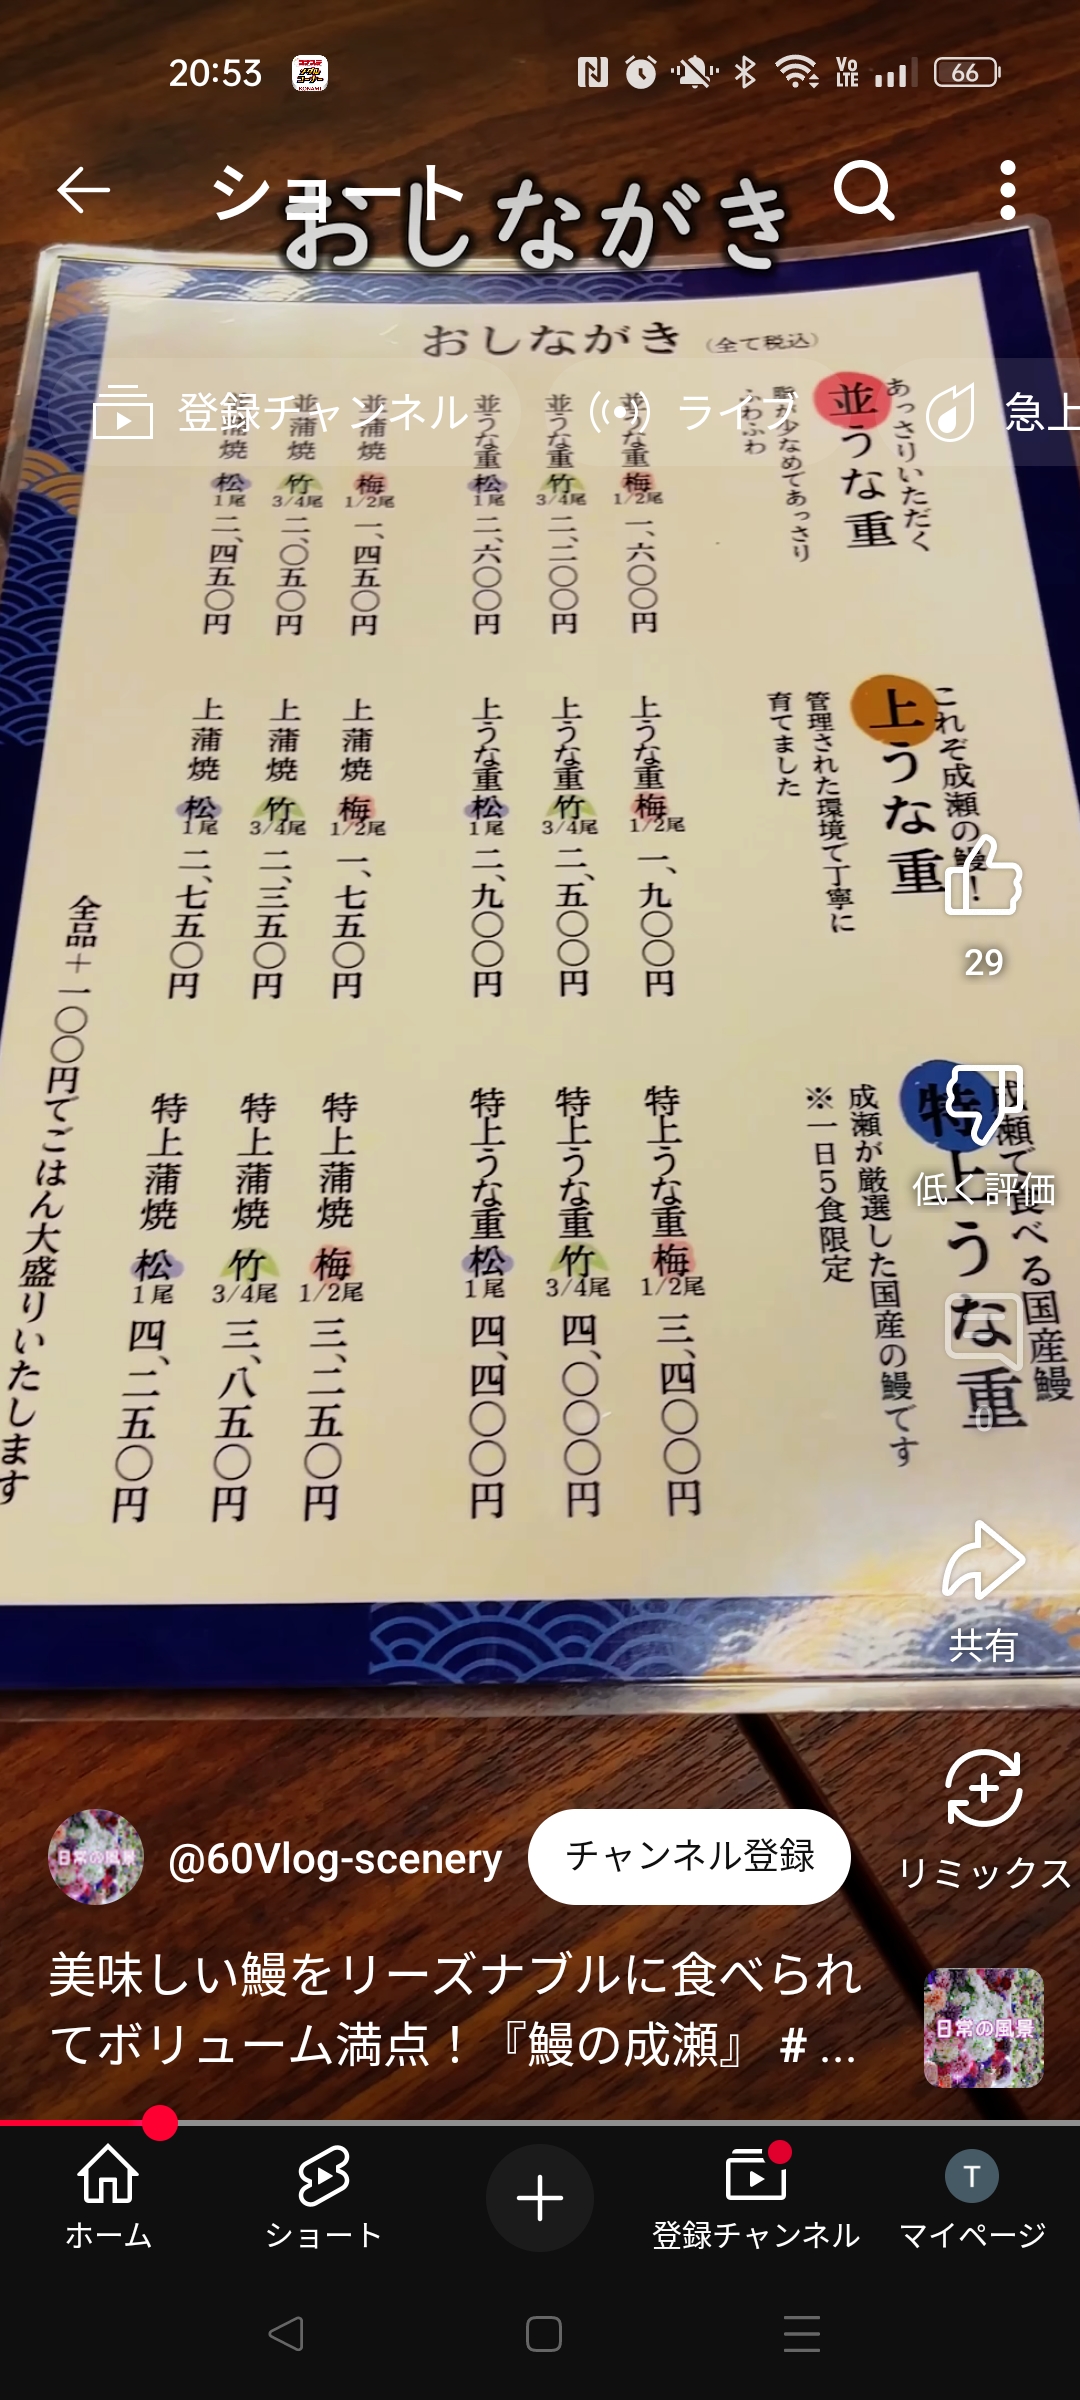 20:53
66
ショート
おしながき
おしながき (全て税込)
登録チャンネル
ライブ
急上
並うな重
あっさりいただく
脂が少なめであっさり
ふわふわ
並うな重 梅 1/2尾 一、六〇〇円
並うな重 竹 3/4尾 二、二〇〇円
並うな重 松 1尾 二、六〇〇円
並蒲焼 梅 1/2尾 一、四五〇円
並蒲焼 竹 3/4尾 二、〇五〇円
蒲焼 松 1尾 二、四五〇円
これぞ成瀬の鰻!
上うな重
管理された環境で丁寧に
育てました
上うな重 梅 1/2尾 一、九〇〇円
上うな重 竹 3/4尾 二、五〇〇円
上うな重 松 1尾 二、九〇〇円
上蒲焼 梅 1/2尾 一、七五〇円
上蒲焼 竹 3/4尾 二、三五〇円
上蒲焼 松 1尾 二、七五〇円
成瀬で食べる国産鰻
特上うな重
成瀬が厳選した国産の鰻です
※一日5食限定
特上うな重 梅 1/2尾 三、四〇〇円
特上うな重 竹 3/4尾 四、〇〇〇円
特上うな重 松 1尾 四、四〇〇円
特上蒲焼 梅 1/2尾 三、二五〇円
特上蒲焼 竹 3/4尾 三、八五〇円
特上蒲焼 松 1尾 四、二五〇円
全品+一〇〇円でごはん大盛りいたします
29
低く評価
0
共有
リミックス
日常の風景
@60Vlog-scenery
チャンネル登録
美味しい鰻をリーズナブルに食べられ
てボリューム満点！『鰻の成瀬』 # ...
日常の風景
ホーム
ショート
登録チャンネル
T
マイページ